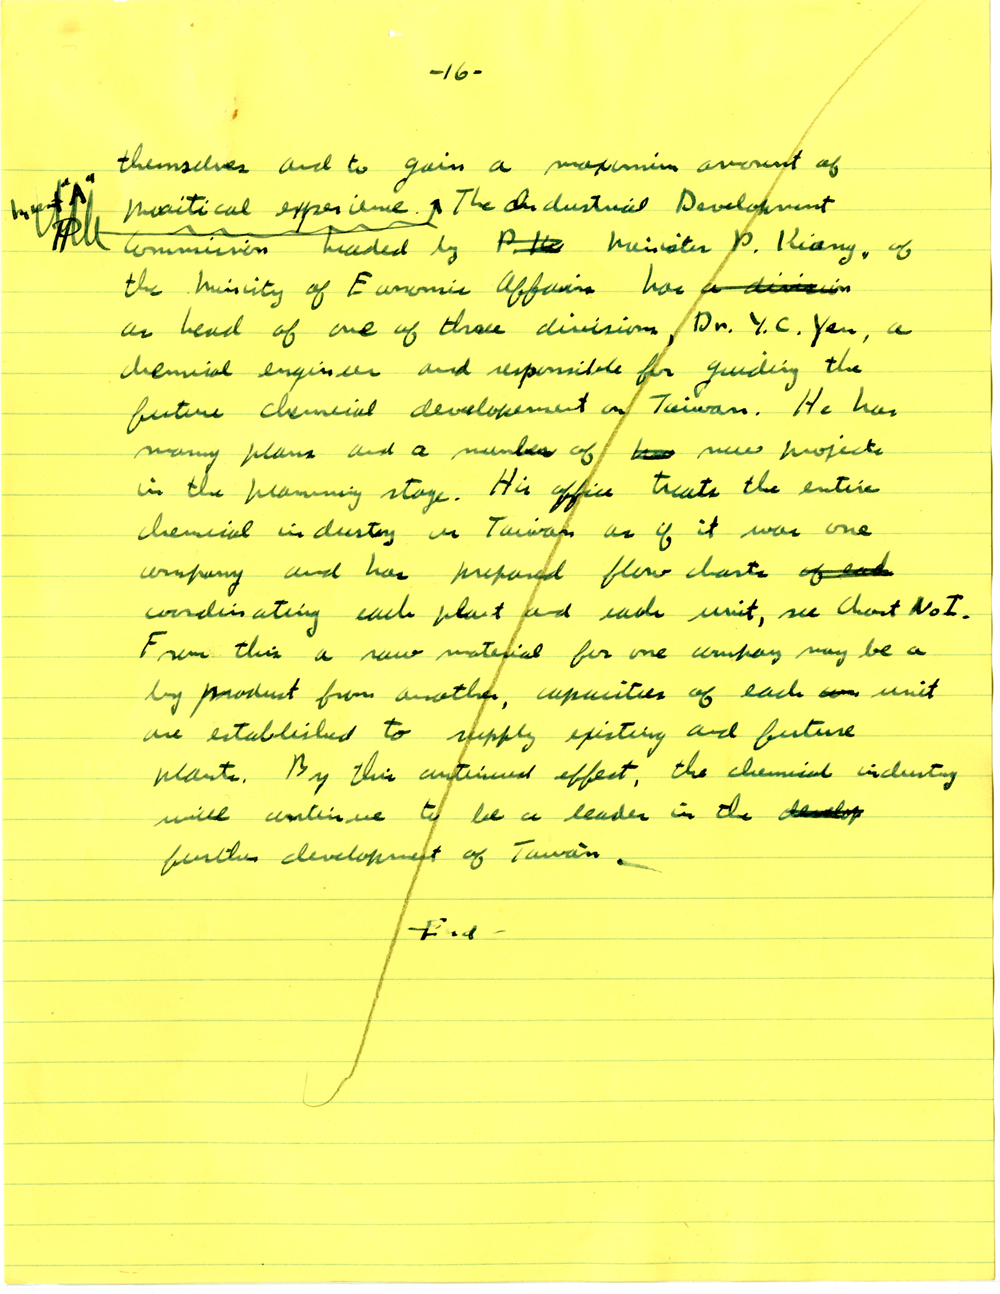 -16-
themselves and to gain a maximim amount of
Insert "A"
practical experience. The Industrial Development
Commission headed by P. Ho Minister P. Kiang, of
the Ministy of Economic Affairs has a division
as head of one of three divisions, Dr. Y.C. Yen, a
chemical engineer and responsible for guiding the
future chemical developement on Taiwan. He has
many plans and a number of new projects
in the planning stage. His office treats the entire
chemical industry on Taiwan as if it was one
company and has prepared flow charts of each
coordinating each plant and each unit, see Chart No I.
From this a raw material for one company may be a
by product from another, capacities of each unit
are established to supply existing and future
plants. By this continued effect, the chemical industry
will continue to be a leader in the develop
further development of Taiwan.
-End-